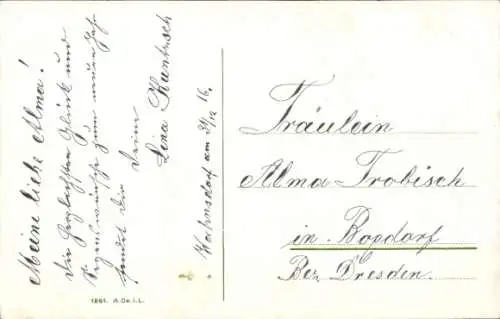 Meine liebe Alma!
Die herzlichsten Glück und
Segenswünsche zum neuen Jahr
sendet Dir Deine
Lena Kuntzsch
Hahnsdorf am 31/12 16.
Fräulein
Alma Trobisch
in Bopdorf
Bez Dresden.
1261. A.Co.i.L.